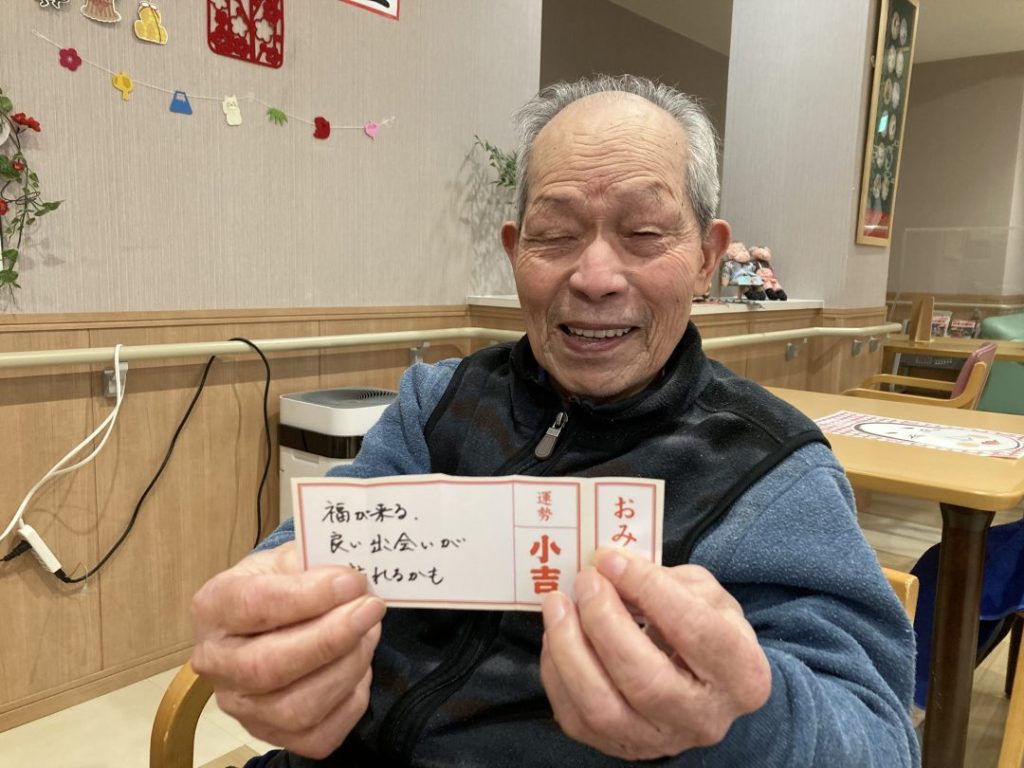 おみ
運勢
小吉
福が来る.
良い出会いが
訪れるかも